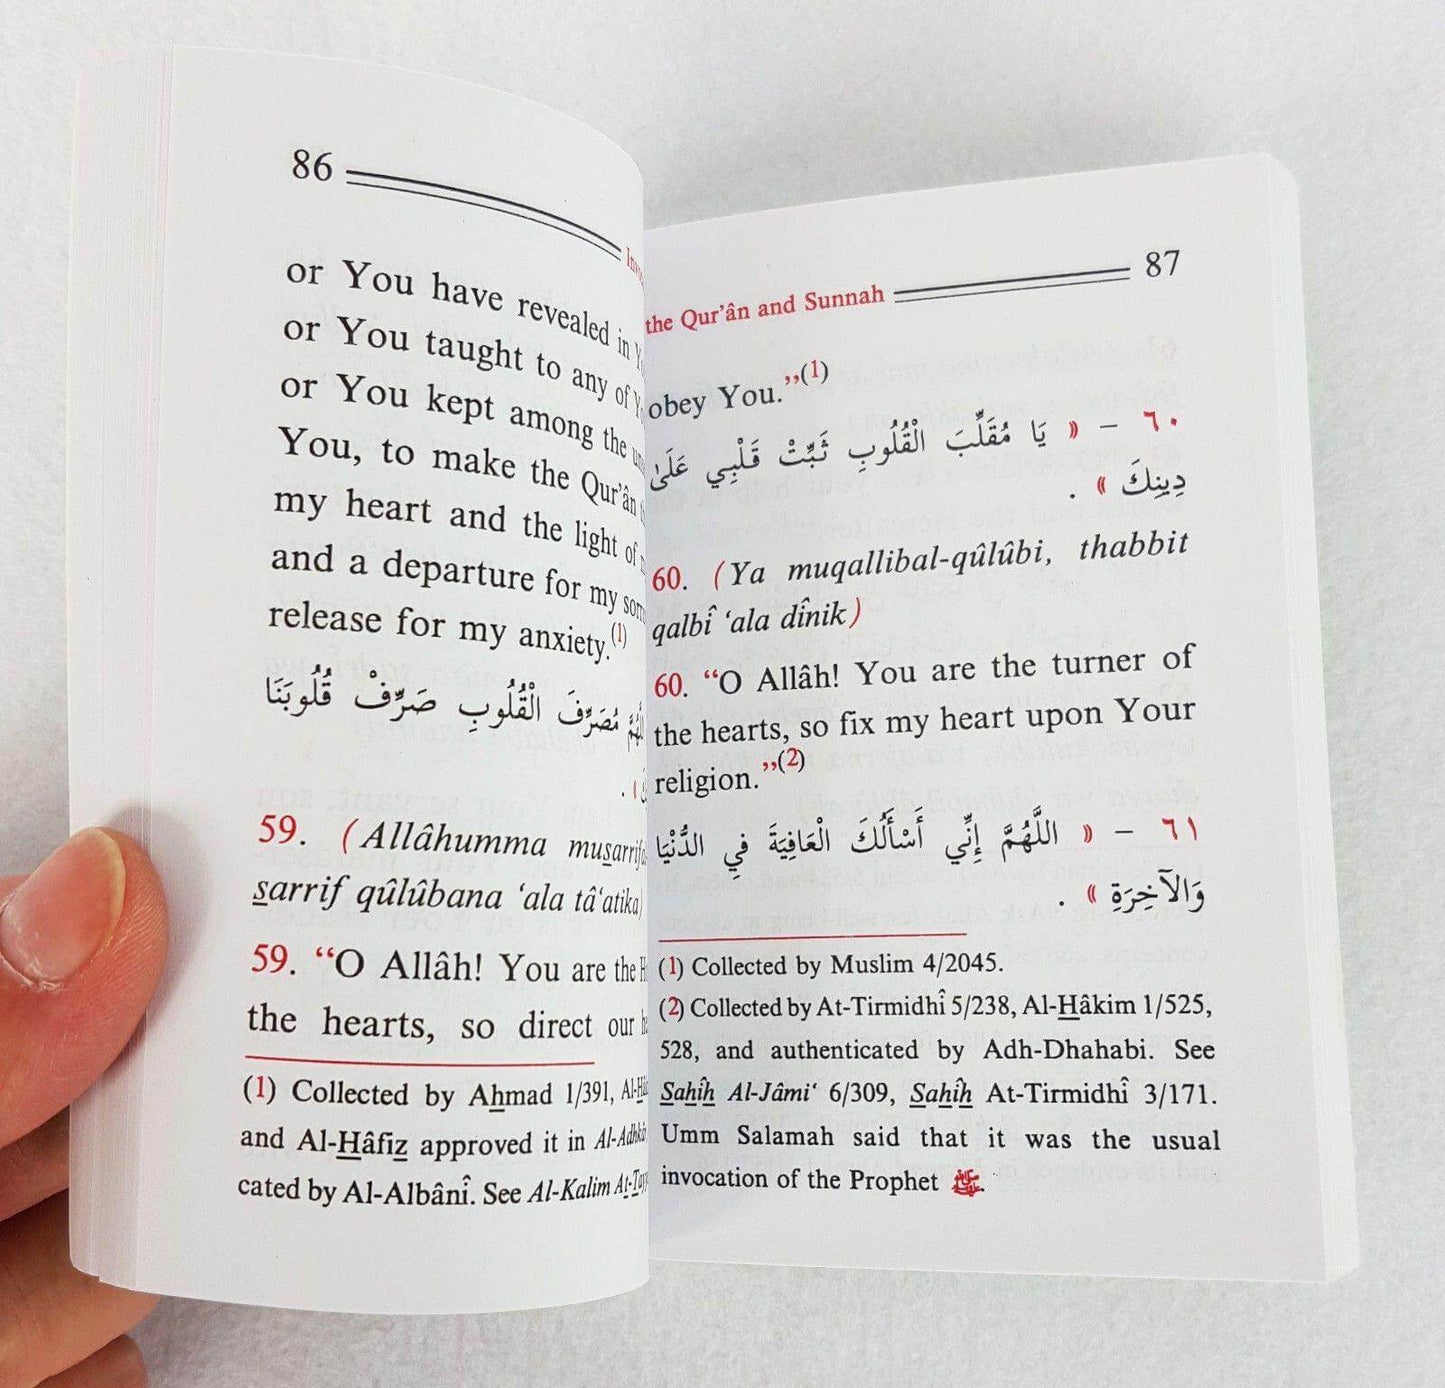 86
or You have revealed in
or You taught to any of
or You kept among the
You, to make the Qur’ân
my heart and the light of
and a departure for my
release for my anxiety.(1)
مُصَرِّفَ الْقُلُوبِ صَرِّفْ قُلُوبَنَا
59. (Allâhumma musarrif
sarrif qûlûbana ‘ala tâ‘atika)
59. “O Allâh! You are the
the hearts, so direct our
(1) Collected by Ahmad 1/391,
and Al-Hâfiz approved it in
cated by Al-Albânî. See Al-Kalim
the Qur’ân and Sunnah 87
obey You.”(1)
٦٠ – « يَا مُقَلِّبَ الْقُلُوبِ ثَبِّتْ قَلْبِي عَلَىٰ
دِينِكَ » .
60. (Ya muqallibal-qûlûbi, thabbit
qalbî ‘ala dînik)
60. “O Allâh! You are the turner of
the hearts, so fix my heart upon Your
religion.”(2)
٦١ – « اللَّهُمَّ إِنِّي أَسْأَلُكَ الْعَافِيَةَ فِي الدُّنْيَا
وَالآخِرَةِ » .
(1) Collected by Muslim 4/2045.
(2) Collected by At-Tirmidhî 5/238, Al-Hâkim 1/525,
528, and authenticated by Adh-Dhahabi. See
Sahîh Al-Jâmi‘ 6/309, Sahîh At-Tirmidhî 3/171.
Umm Salamah said that it was the usual
invocation of the Prophet ﷺ.